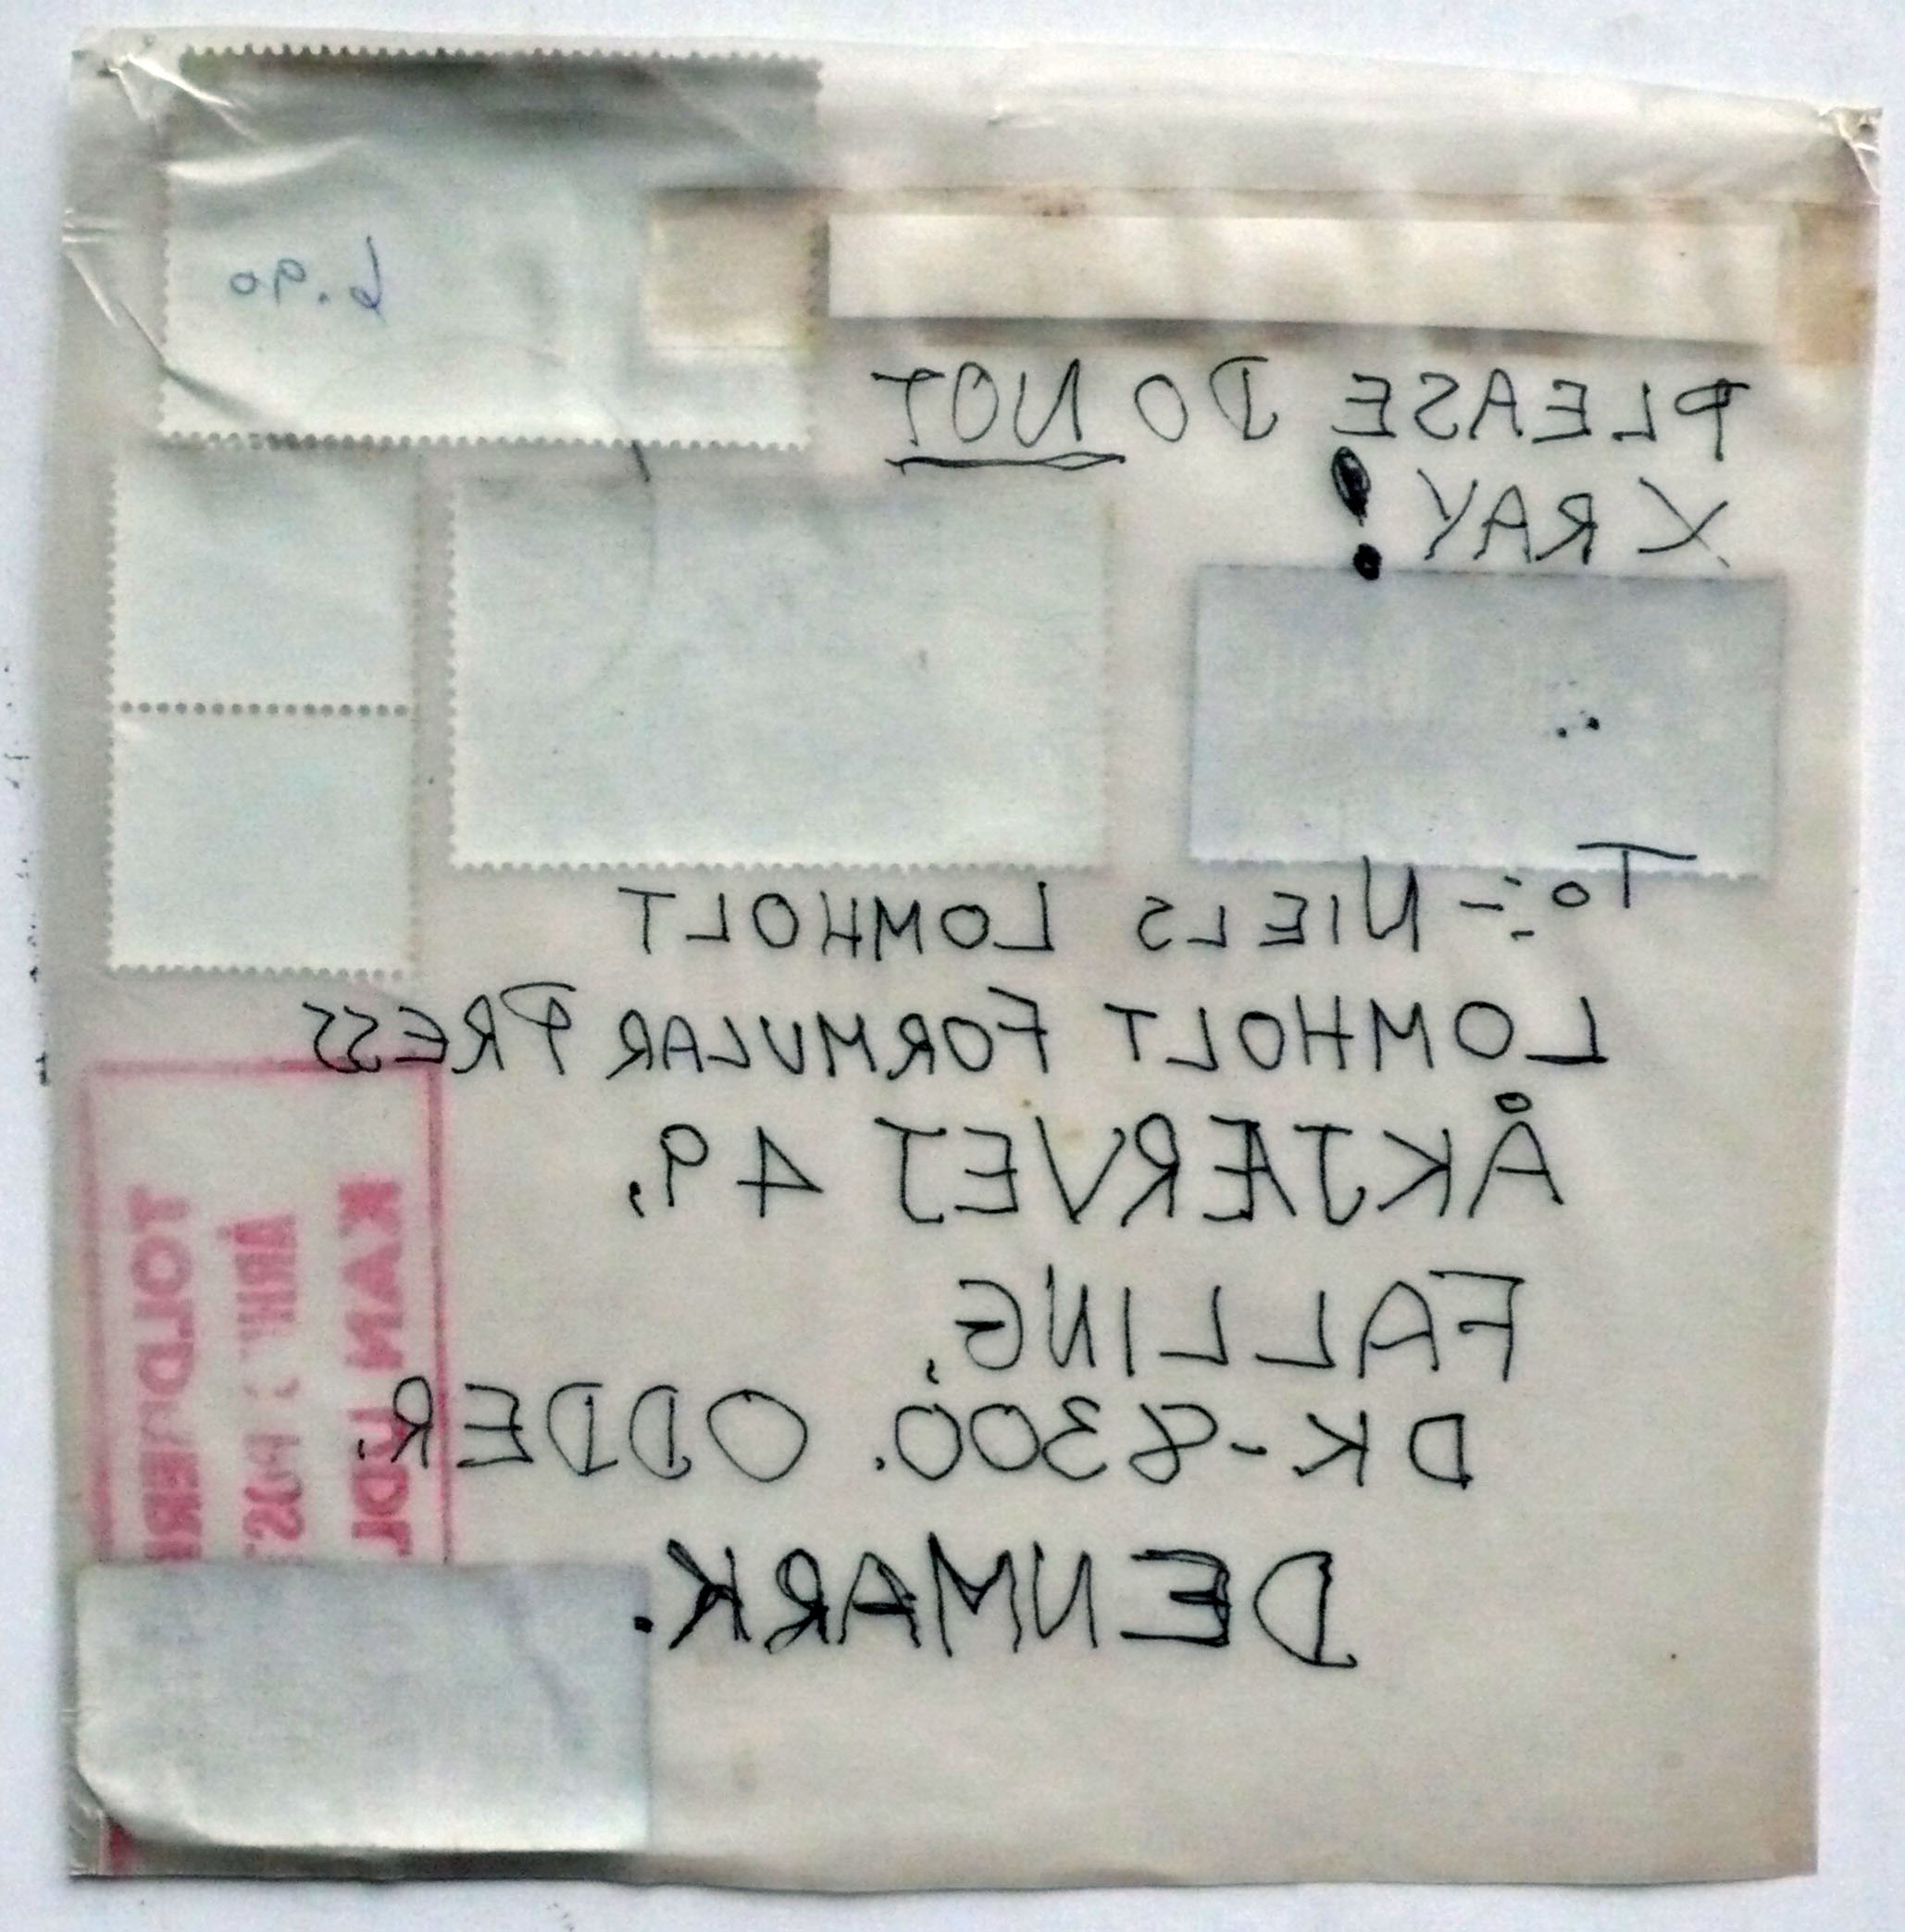 6.90
PLEASE DO NOT
XRAY!
To:- NIELS LOMHOLT
LOMHOLT FORMULAR PRESS
ÅKJÆRVEJ 49,
FALLING,
DK-8300. ODDER.
DENMARK.
KAN